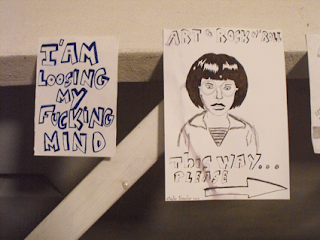 I'AM
LOOSING
MY
FUCKING
MIND
ART & ROCK N' ROLL
THIS WAY...
PLEASE